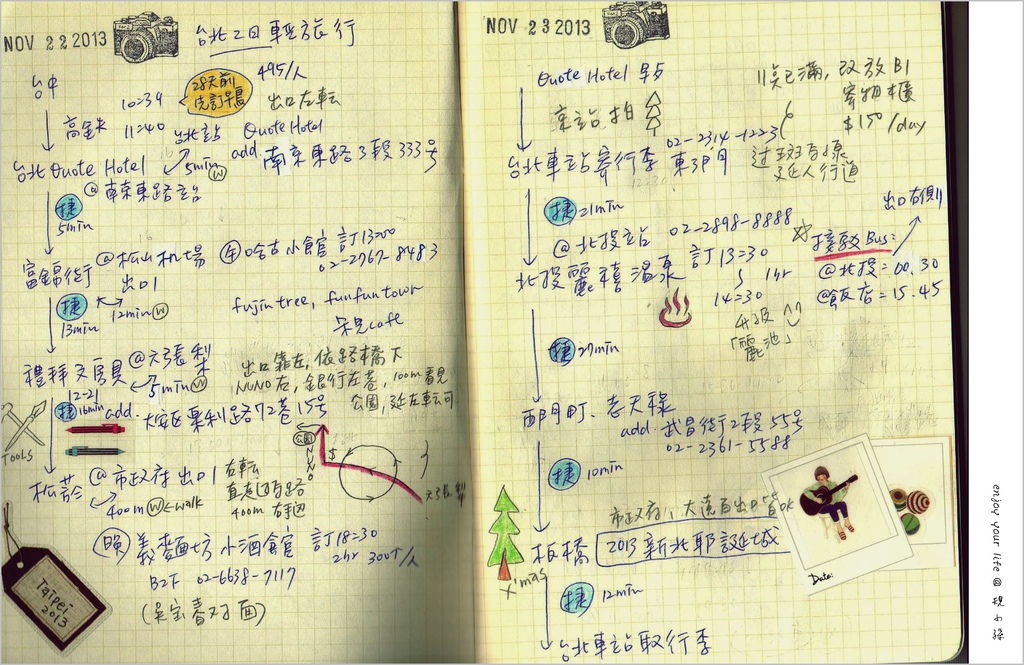 NOV 22 2013
台北2日輕旅行
台中
10:39
28天前
先訂早鳥
495/人
出口左転
高鐵
11:40 台北站
Quote Hotel
台北 Quote Hotel
5min W
add. 南京東路3段333号
@南京東路站
捷
5min
富錦街
@松山机場
出口1
午 哈古小館 訂13:00
02-2767-8483
捷
13min
12min W
fujin tree, funfuntown
朵兒cafe
禮拜文房具 @六張犁
12-21
5min W
出口靠左,依路橋下
NUNO右,銀行左巷,100m看見
公園,延左転可
捷 16min
add. 大安区樂利路72巷15号
TOOLS
公園
NUNO
$
六張犁
松菸 @市政府出口1
右転
400m W←walk
400m 右手边
晚 義麵坊小酒館 訂18:30
2hr 300↑/人
B2F 02-6638-7117
(吳宝春对面)
Taipei
2013
NOV 23 2013
Quote Hotel 早5
京站拍
11点已滿,改放B1
寄物櫃
$150/day
02-2314-1223
台北車站寄行李 東3門
过斑馬線
延人行道
捷 21min
@北投站
02-2898-8888
出口右側
接駁Bus:
@北投=00.30
@飯店=15.45
北投麗禧温泉
訂13:30
1hr
14:30
升級 ^^
「麗池」
捷 27min
西門町、老天祿
add. 武昌街2段55号
02-2361-5588
捷 10min
市政府,大遠百出口皆OK
板橋 2013新北耶誕城
X'mas
捷 12min
台北車站取行李
Date:
enjoy your life @